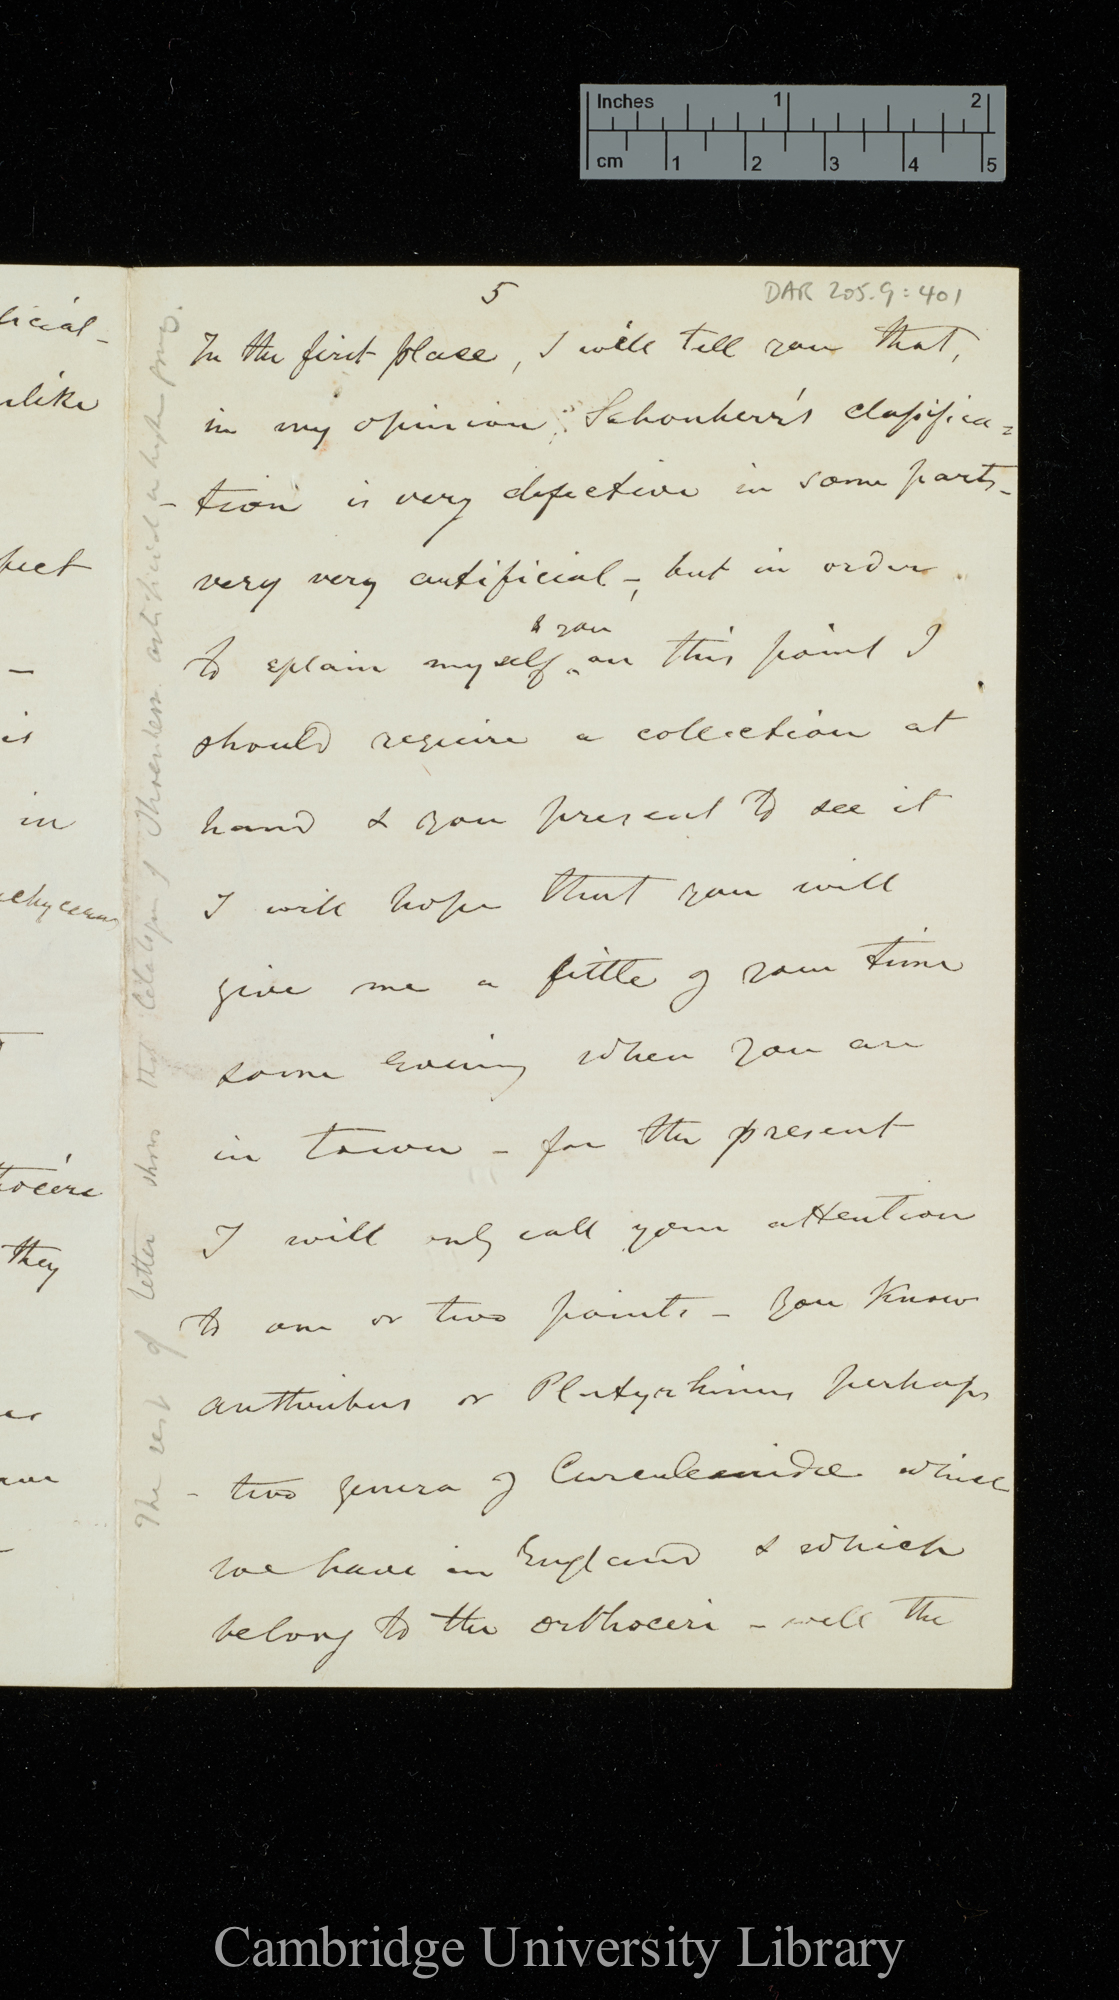 Inches 1 2
cm 1 2 3 4 5
5
DAR 205.9:401
In the first place, I will tell you that,
in my opinion, Schonherr's classifica=
tion is very defective in some parts–
very very artificial –, but in order
to you
to eplain myself ^ on this point I
should require a collection at
hand & you present to see it
I will hope that you will
give me a little of your time
some Evening when you are
in town – for the present
I will only call your attention
to one or two points – you know
anthribus or Platyrhinus perhaps
– two genera of Curculionidæ which
we have in England & which
belong to the orthoceri – well the
The rest of letter shows that Catalogue of Shoenherr artificial in higher groups.
ficial–
alike
fect
–
is
in
achycerus
tocéri
they
–
Cambridge University Library